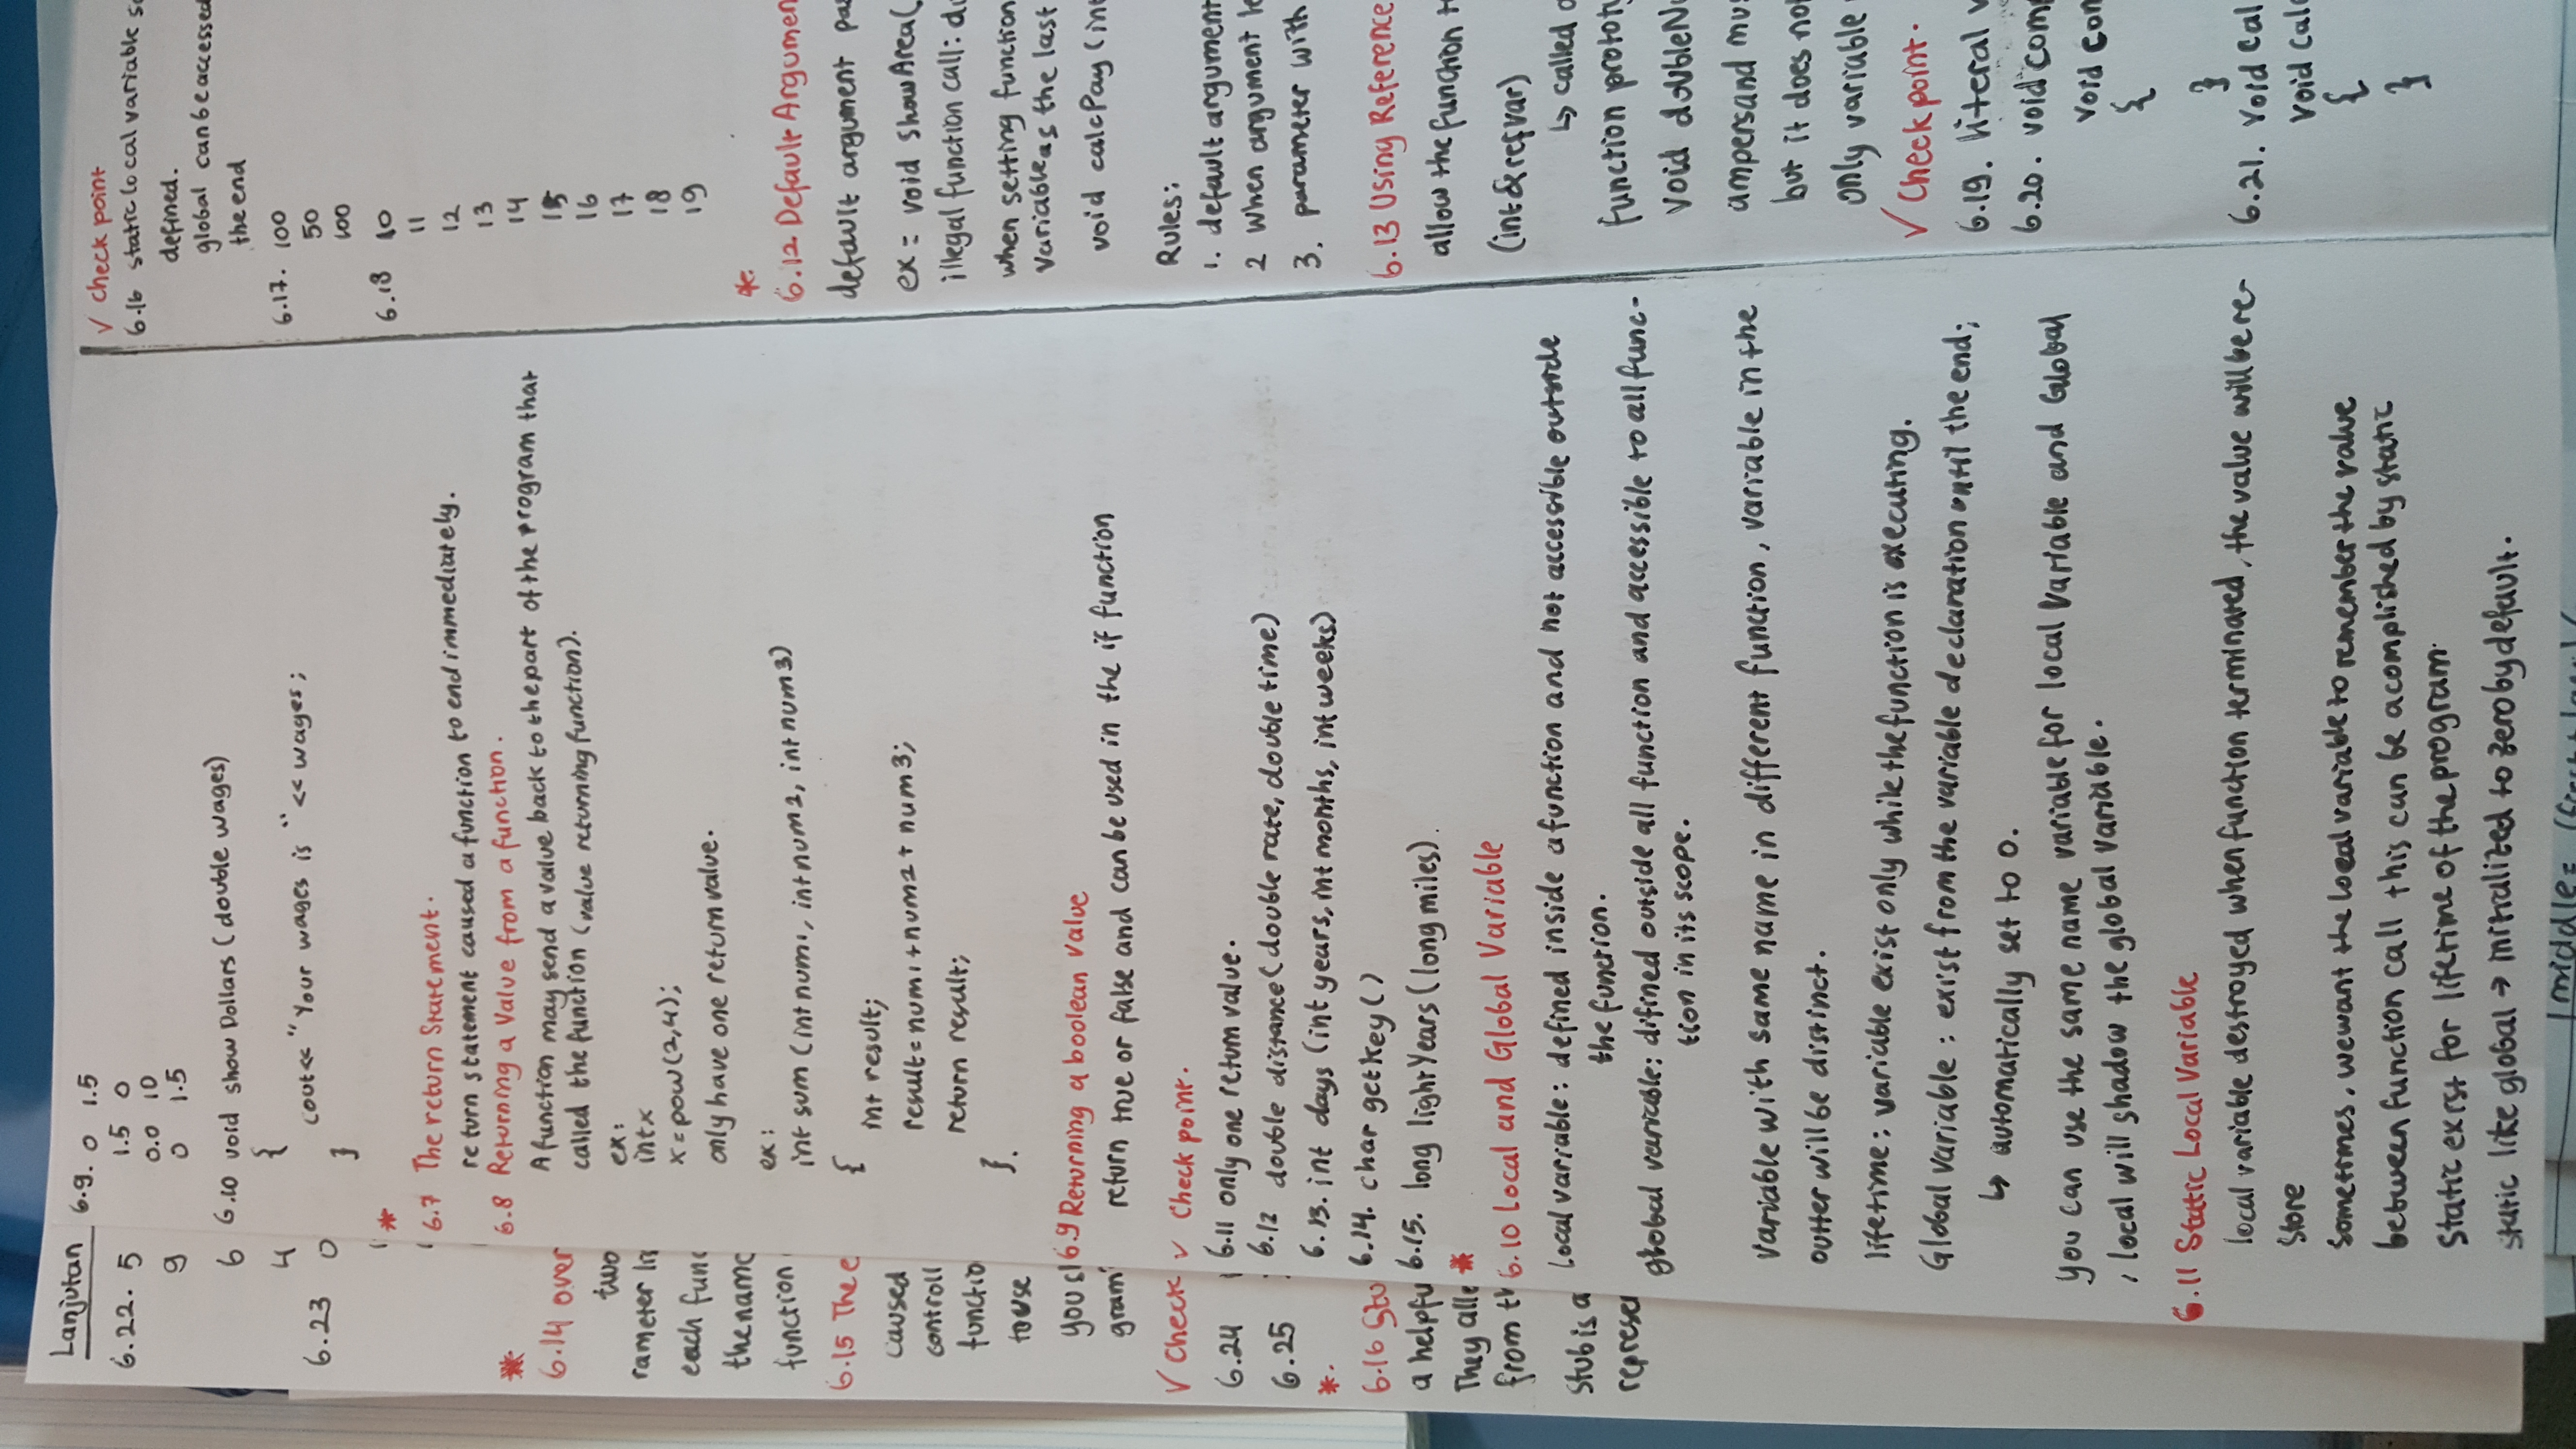 Lanjutan
6.22. 5
9
6
4
6.23 0
6.14 over
two
rameter
each func
the name
function
6.15 The e
caused
controll
functio
to use
you sl
gram
✓ Check
6.24
6.25
*.
6.16 Stu
a helpfu
They allo
from th
Stub is a
represen
6.9. 0 1.5
1.5 0
0.0 10
0 1.5
6.10 void show Dollars (double wages)
{
cout<< "Your wages is "<< wages;
}
*
6.7 The return Statement.
return statement caused a function to end immediately.
6.8 Returning a Value from a function.
A function may send a value back to the part of the program that
called the function (value returning function).
ex:
int x
x = pow(2,4);
only have one return value.
ex:
int sum (int num1, int num2, int num3)
{
int result;
result = num1 + num2 + num3;
return result;
}.
6.9 Returning a boolean value
return true or false and can be used in the if function
✓ Check point.
6.11 only one return value.
6.12 double distance (double rate, double time)
6.13. int days (int years, int months, int weeks)
6.14. char getkey()
6.15. long lightYears (long miles).
*
6.10 Local and Global Variable
Local variable: defined inside a function and not accessible outside
the function.
global variable: difined outside all function and accessible to all func-
tion in its scope.
Variable with same name in different function, variable in the
outter will be distinct.
lifetime: variable exist only while the function is executing.
Global variable: exist from the variable declaration until the end;
↳ automatically set to 0.
you can use the same name variable for local Variable and Global
, local will shadow the global variable.
6.11 Static Local Variable
local variable destroyed when function terminated, the value will be re-
store
Sometimes, we want the local variable to remember the value
between function call this can be acomplished by static
Static exist for lifetime of the program.
static like global → initialized to zero by default.
✓ check point
6.16 static local variable sc
defined.
global can be accessed
the end
6.17. 100
50
100
6.18 10
11
12
13
14
15
16
17
18
19
*.
6.12 Default Argumen
default argument pas
ex = void showArea(
illegal function call:
when setting function
variable as the last
void calcPay (int
Rules:
1. default argument
2 when argument
3. parameter with
6.13 Using Reference
allow the function t
(int & refvar)
↳ called
function prototy
void doubleNu
ampersand mus
but it does not
only variable
✓ Check point.
6.19. literal v
6.20. void comp
void com
{
}
6.21. void cal
void calc
{
}
middle =